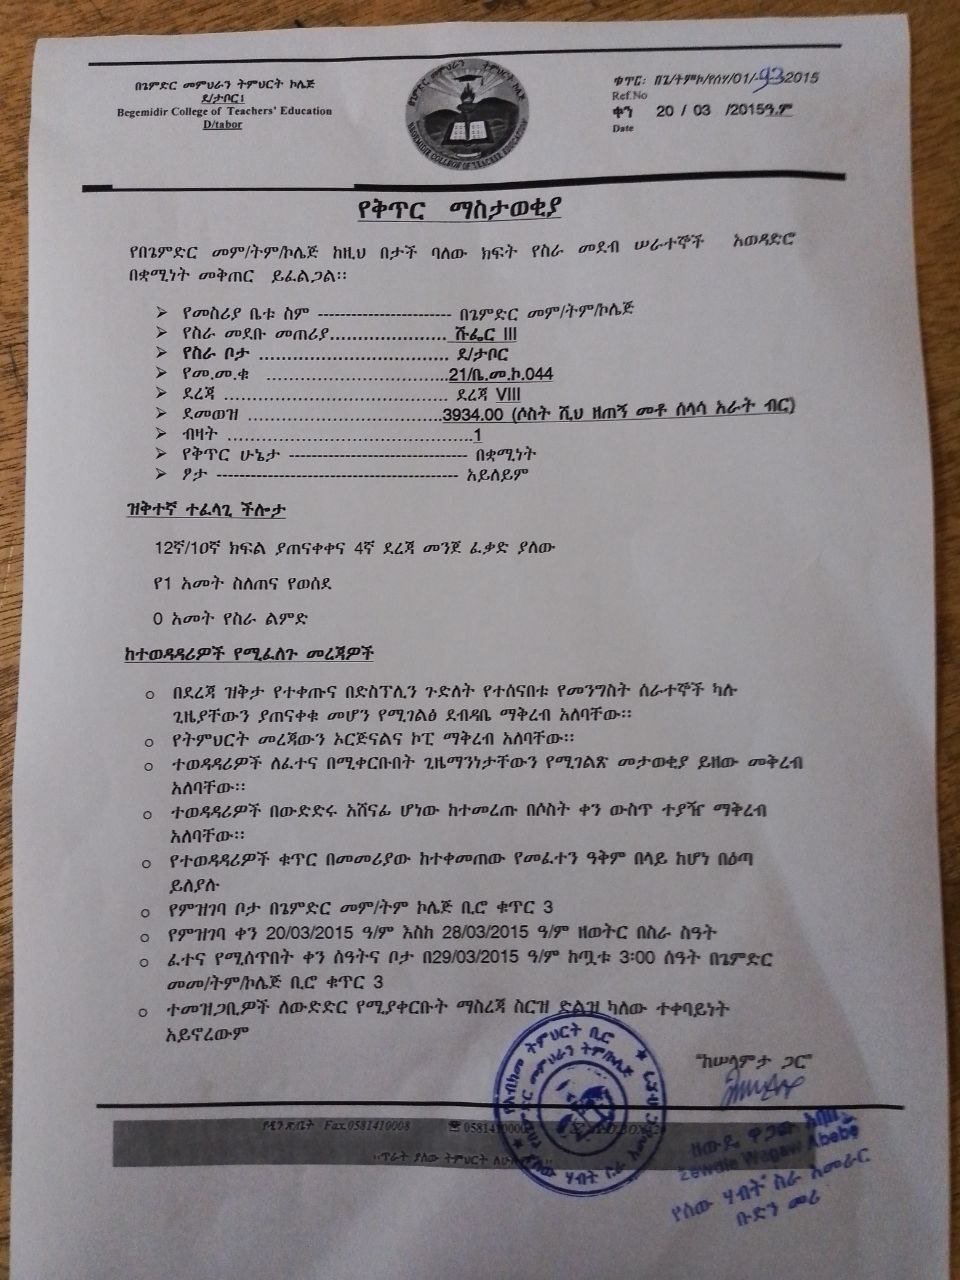 በጌምድር መምህራን ትምህርት ኮሌጅ
ደ/ታቦር፤
Begemidir College of Teachers' Education
D/tabor
BAGEMIDIR COLLEGE OF TEACHER EDUCATION
ቁጥር: በጌ/ትምኮ/የሰሃ/01/-93-2015
Ref.No
ቀን 20 / 03 /2015ዓ.ም
Date
የቅጥር ማስታወቂያ
የበጌምድር መም/ትም/ኮሌጅ ከዚህ በታች ባለው ክፍት የስራ መደብ ሠራተኞች አወዳድሮ
በቋሚነት መቅጠር ይፈልጋል፡፡
➢ የመስሪያ ቤቱ ስም ------------------------- በጌምድር መም/ትም/ኮሌጅ
➢ የስራ መደቡ መጠሪያ...................... ሹፌር III
➢ የስራ ቦታ .................................... ደ/ታቦር
➢ የመ.መ.ቁ ...................................21/ቤ.መ.ኮ.044
➢ ደረጃ ........................................... ደረጃ VIII
➢ ደመወዝ .....................................3934.00 (ሶስት ሺህ ዘጠኝ መቶ ሰላሳ አራት ብር)
➢ ብዛት ...............................................1
➢ የቅጥር ሁኔታ ---------------------------------- በቋሚነት
➢ ፆታ ---------------------------------------------- አይለይም
ዝቅተኛ ተፈላጊ ችሎታ
12ኛ/10ኛ ክፍል ያጠናቀቀና 4ኛ ደረጃ መንጀ ፈቃድ ያለው
የ1 አመት ስለጠና የወሰደ
0 አመት የስራ ልምድ
ከተወዳዳሪዎች የሚፈለጉ መረጃዎች
o በደረጃ ዝቅታ የተቀጡና በድስፕሊን ጉድለት የተሰናበቱ የመንግስት ሰራተኞች ካሉ
ጊዜያቸውን ያጠናቀቁ መሆን የሚገልፅ ደብዳቤ ማቅረብ አለባቸው፡፡
o የትምህርት መረጃውን ኦርጅናልና ኮፒ ማቅረብ አለባቸው፡፡
o ተወዳዳሪዎች ለፈተና በሚቀርቡበት ጊዜማንነታቸውን የሚገልጽ መታወቂያ ይዘው መቅረብ
አለባቸው፡፡
o ተወዳዳሪዎች በውድድሩ አሸናፊ ሆነው ከተመረጡ በሶስት ቀን ውስጥ ተያዥ ማቅረብ
አለባቸው፡፡
o የተወዳዳሪዎች ቁጥር በመመሪያው ከተቀመጠው የመፈተን ዓቅም በላይ ከሆነ በዕጣ
ይለያሉ
o የምዝገባ ቦታ በጌምድር መም/ትም ኮሌጅ ቢሮ ቁጥር 3
o የምዝገባ ቀን 20/03/2015 ዓ/ም እስከ 28/03/2015 ዓ/ም ዘወትር በስራ ስዓት
o ፈተና የሚሰጥበት ቀን ሰዓትና ቦታ በ29/03/2015 ዓ/ም ከጧቱ 3፡00 ሰዓት በጌምድር
መመ/ትም/ኮሌጅ ቢሮ ቁጥር 3
o ተመዝጋቢዎች ለውድድር የሚያቀርቡት ማስረጃ ስርዝ ድልዝ ካለው ተቀባይነት
አይኖረውም
"ከሠላምታ ጋር"
Fax 0581410008
"ጥራት ያለው ትምህርት ለሁሉም"
Zewdie Wagaw Abebe
የሰው ሃብት ስራ አመራር
ቡድን መሪ